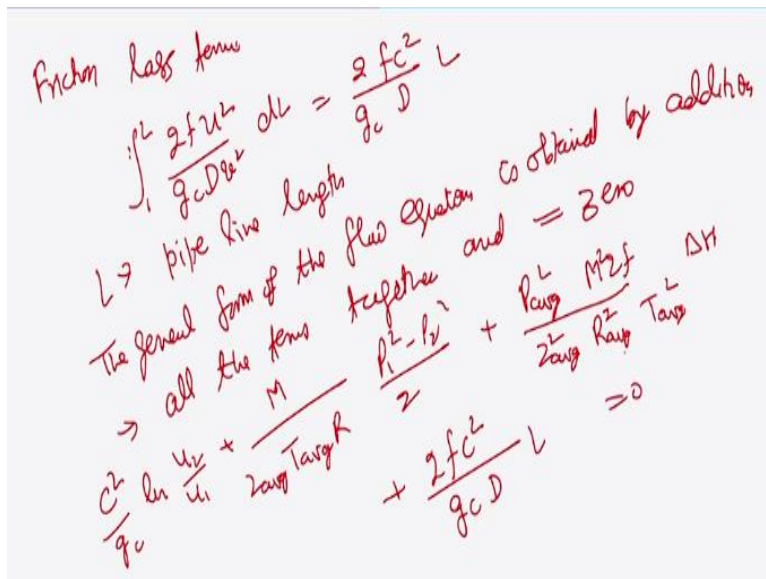 Friction loss term
∫₁² 2fu² / g_c D v² dL = 2 f C² / g_c D L
L → pipe line length
The general form of the flow equation is obtained by addition
→ all the terms together and = zero
C²/g_c ln u₂/u₁ + M / Z_avg T_avg R (P₁² - P₂²)/2 + P²_avg M² g / Z²_avg R²_avg T²_avg ΔH
+ 2fC² / g_c D L = 0